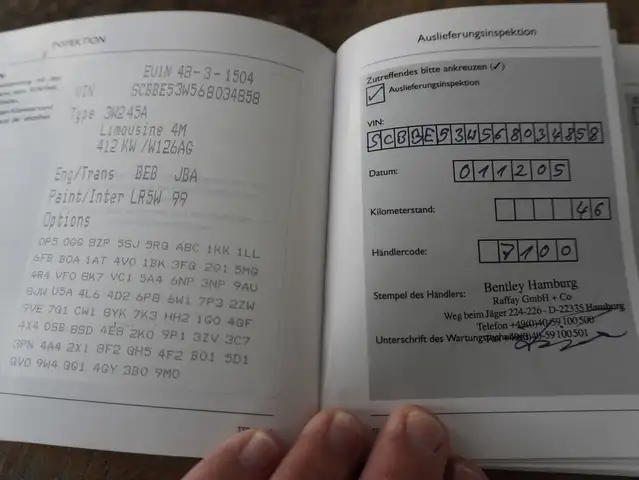 INSPEKTION
EU1N 48-3-1504
VIN SCBBE53W568034858
Type 3W245A
Limousine 4M
412 KW /W126AG
Eng/Trans BEB JBA
Paint/Inter LR5W 99
Options
0P5 0GG 8ZP 5SJ 5RQ A8C 1KK 1LL
6FB B0A 1AT 4V0 1BK 3FG 2G1 5MG
4R4 VF0 8K7 VC1 5A4 6NP 3NP 9AU
8JW U5A 4L6 4D2 6P8 6W1 7P3 2ZW
9VE 7Q1 CW1 8YK 7K3 HH2 1G0 4GF
4X4 0SB 8SD 4E8 2K0 9P1 3ZV 3C7
3PN 4A4 2X1 8F2 QH5 4F2 B01 5D1
QV0 9W4 GG1 4GY 3B0 9M0
Auslieferungsinspektion
Zutreffendes bitte ankreuzen (✓)
✓ Auslieferungsinspektion
VIN:
SCBBE53W568034858
Datum: 011205
Kilometerstand: 46
Händlercode: 7100
Stempel des Händlers: Bentley Hamburg
Raffay GmbH + Co
Weg beim Jäger 224-226 - D-22335 Hamburg
Telefon +49(0)40/59 100 500
Unterschrift des Wartungs
+49(0)40-59 100 501